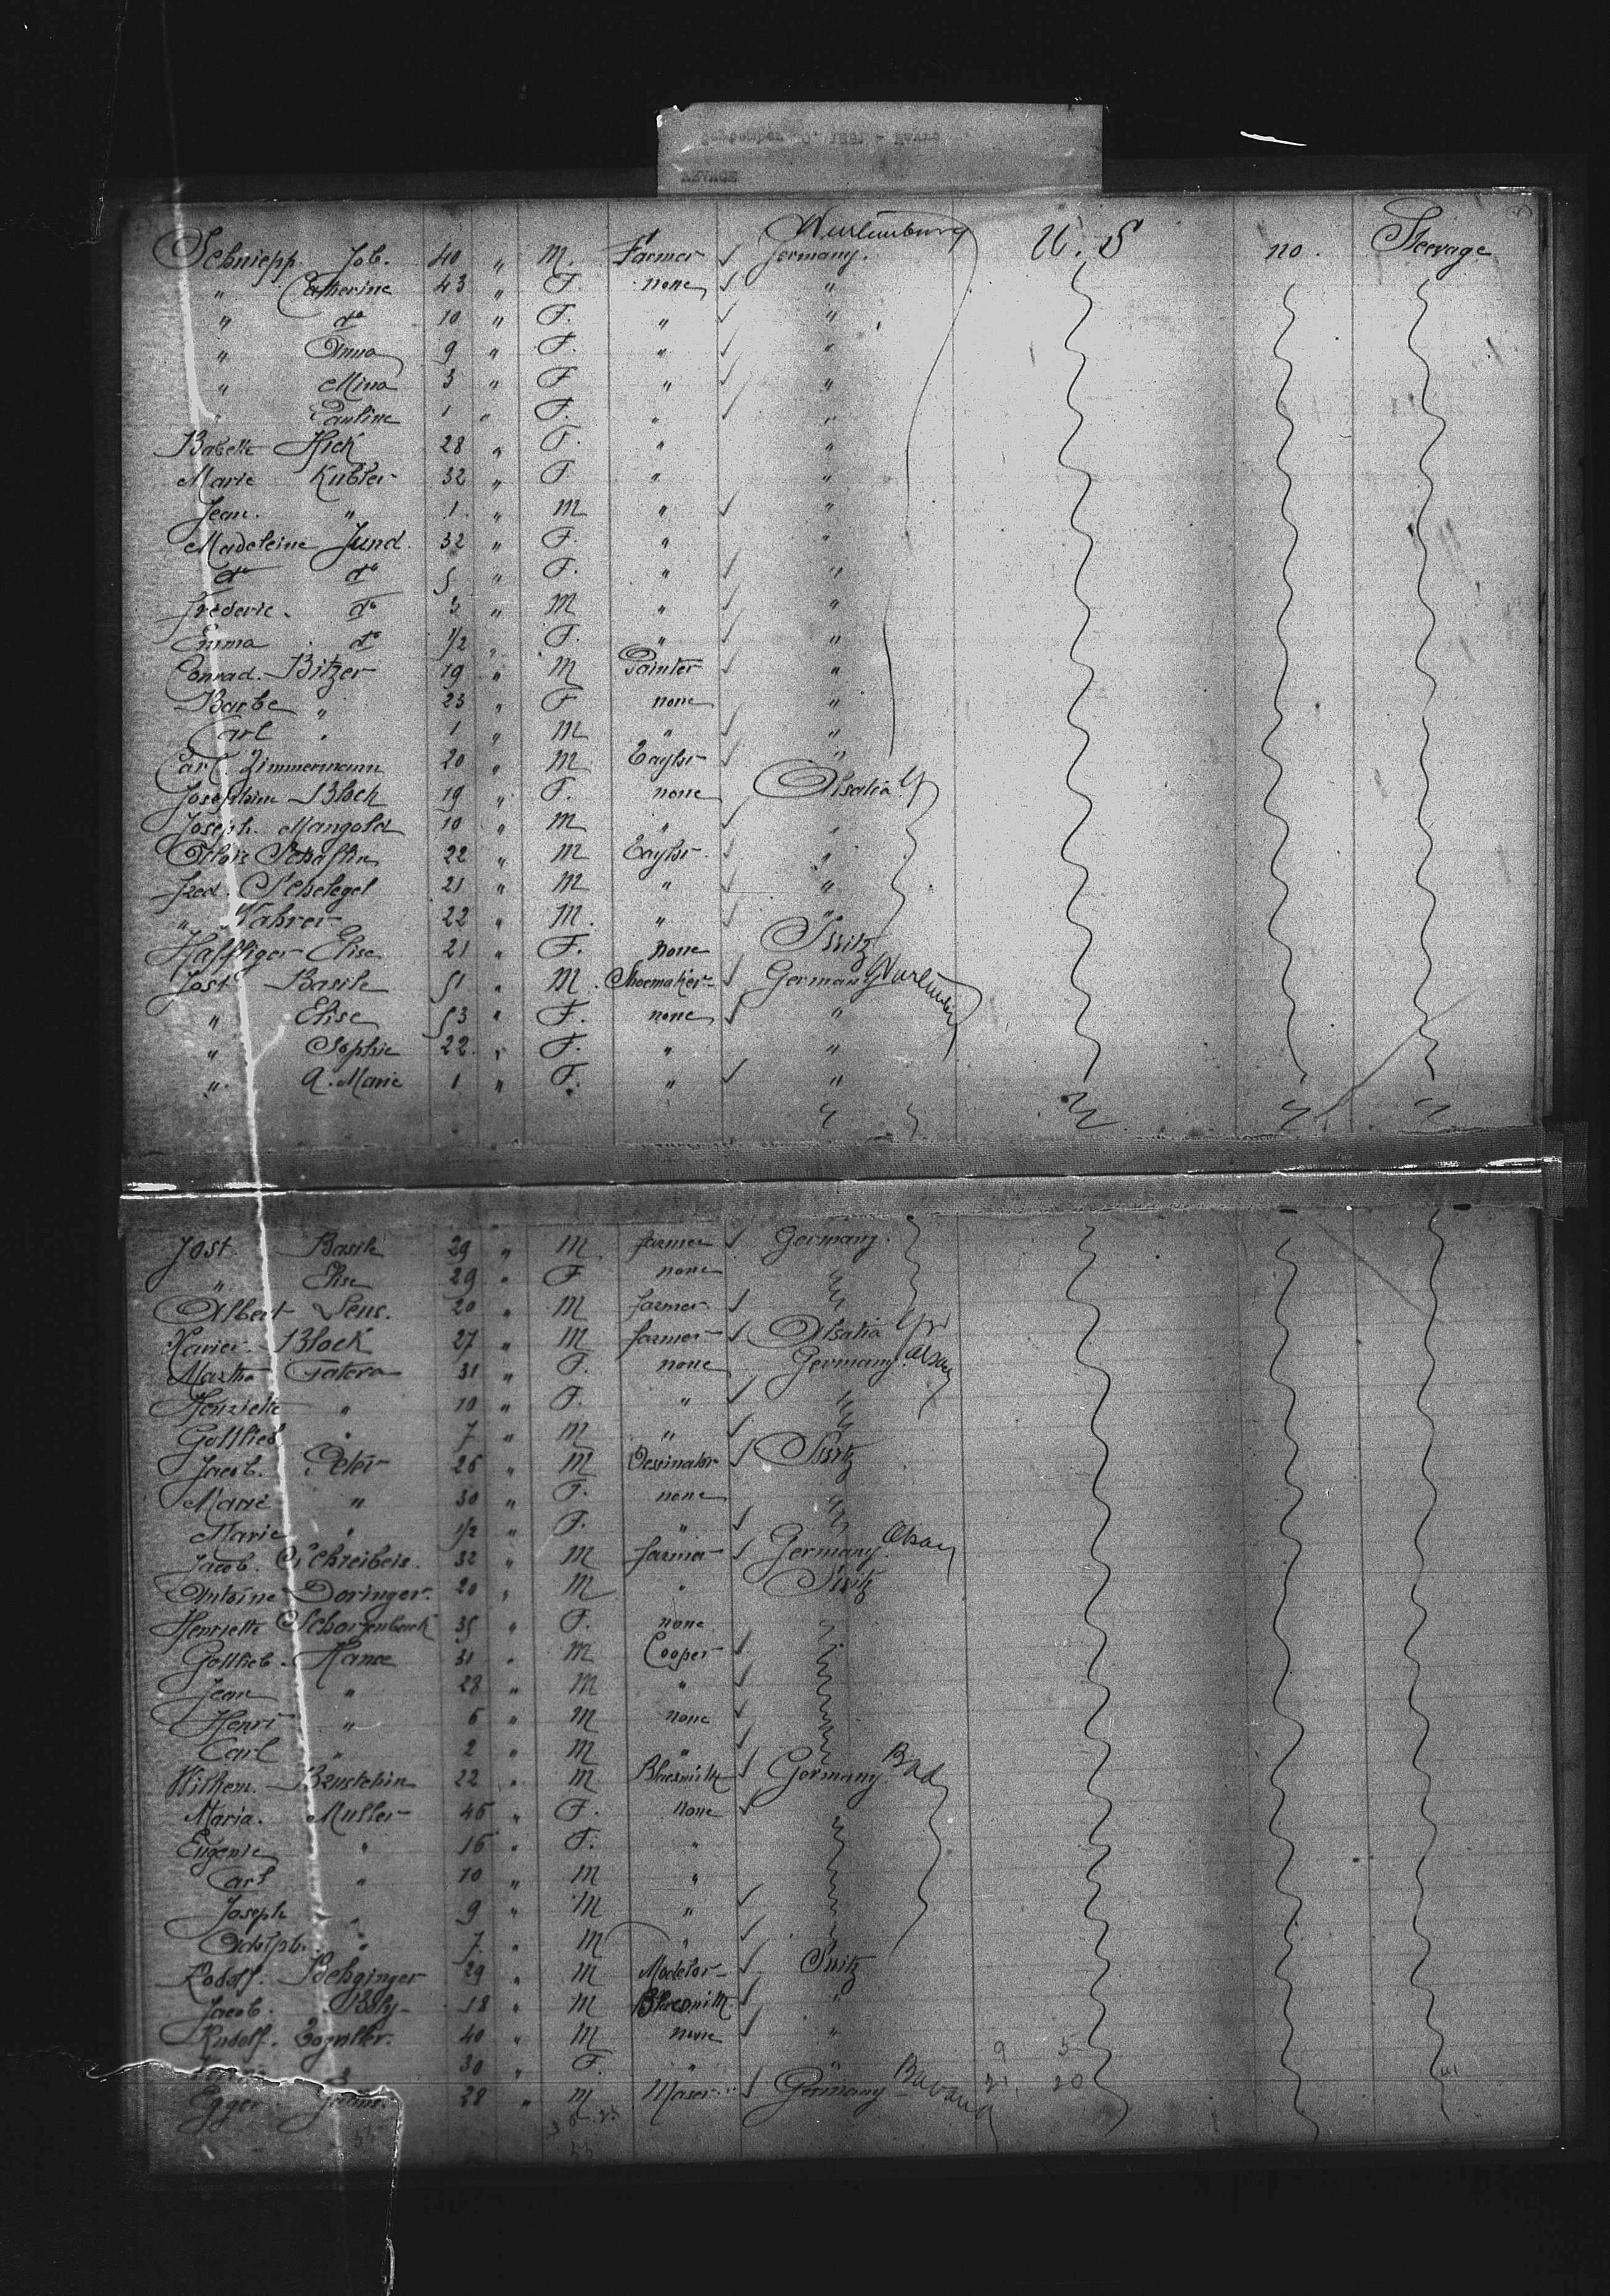 Wurtemburg
Schniepp Job. 40 " M. Farmer Germany. U. S no. Steerage
" Catherine 43 " F. none "
" do 10 " F. " "
" Anna 9 " F. " "
" Mina 3 " F " "
" Pauline 1 " F. " "
Babette Hick 28 " F. " "
Marie Kubler 32 " F. " "
Jean. " 1. " M " "
Madeleine Jund 32 " F. " "
do do 5 " F. " "
Frederic. do 3 " M " "
Emma do 1/2 " F. " "
Conrad. Bitzer 19 " M Painter "
Barbe " 23 " F none "
Carl " 1 " M " "
Carl Zimmermann 20 " M Taylor "
Josephine Block 19 " F. none Alsatia
Joseph. Mangold 10 " M " "
22 " M Taylor "
Fred. Schelegel 21 " M " "
" Nahrer 22 " M. " "
Haffliger Elise 21 " F. none Switz
Jost Basile 51 " M. Shoemaker Germany Wurtemb
" Elise 53 " F. none "
" Sophie 22 " F. " "
" A. Marie 1 " F. " "
Jost Basile 29 " M. farmer Germany.
" Elise 29 " F none
Albert Sens. 20 " M farmer.
Xavier Block 27 " M farmer Alsatia
Martha Fatera 31 " F. none Germany. Alsay
Henriette " 10 " F. "
Gottlieb " 7 " M "
Jacob. Peter 26 " M Dessinator Switz
Marie " 30 " F. none
Marie " 1/2 " F. "
Jacob. Schreibeis. 32 " M farmer Germany. Alsay
Antoine Doringer. 20 " M " Switz
Henriette 35 " F. none
Gottlieb. Hanse 31 " M Cooper
Jean " 28 " M "
Henri " 6 " M none
Carl " 2 " M "
Wilhem. 22 " M Blacsmith Germany. Bad
Maria. Muller 46 " F. none
Eugenie " 16 " F. "
Carl " 10 " M "
Joseph " 9 " M "
Adolph. " 7 " M "
Rodolf. 29 " M Modelor Switz
Jacob. 18 " M Blacsmith "
Rudolf. 40 " M none "
30 " F. " "
Egger 28 " M Maser Germany Bavaria